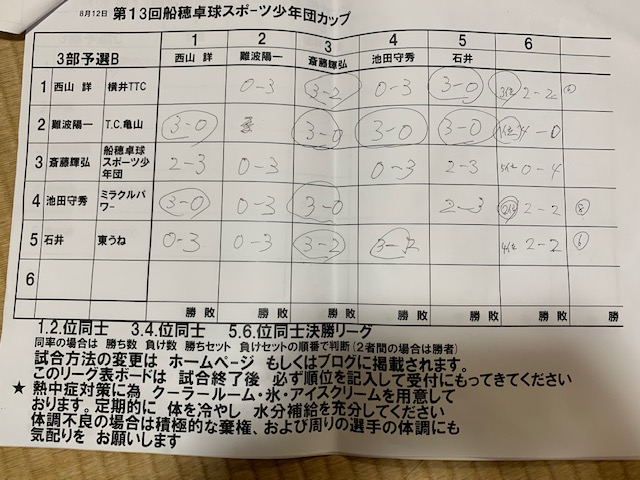 8月12日 第13回船穂卓球スポーツ少年団カップ
1 2 3 4 5 6
3部予選B 西山 詳 難波陽一 斎藤輝弘 池田守秀 石井
1 西山 詳 横井TTC 0-3 3-2 0-3 3-0 3位 2-2
2 難波陽一 T.C.亀山 3-0 3-0 3-0 3-0 1位 4-0
3 斎藤輝弘 船穂卓球スポーツ少年団 2-3 0-3 0-3 2-3 5位 0-4
4 池田守秀 ミラクルパワー 3-0 0-3 3-0 2-3 2位 2-2 ⑧
5 石井 東うね 0-3 0-3 3-2 3-2 4位 2-2 ⑥
6
勝 敗 勝 敗 勝 敗 勝 敗 勝 敗 勝 敗
1.2.位同士 3.4.位同士 5.6.位同士決勝リーグ
同率の場合は 勝ち数 負け数 勝ちセット 負けセットの順番で判断(2者間の場合は勝者)
試合方法の変更は ホームページ もしくはブログに掲載されます。
このリーグ表ボードは 試合終了後 必ず順位を記入して受付にもってきてください
★ 熱中症対策に為 クーラールーム・氷・アイスクリームを用意して
おります。定期的に 体を冷やし 水分補給を充分してください
体調不良の場合は積極的な棄権、および周りの選手の体調にも
気配りを お願いします